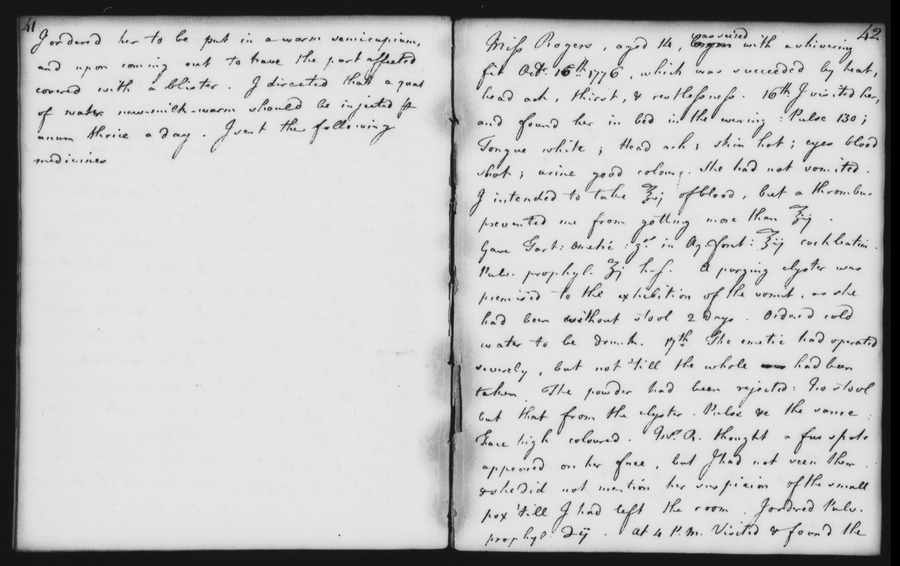 41
I ordered her to be put in a warm semicupium,
and upon coming out to have the part affected
covered with a blister. I directed that a quart
of water new-milk-warm should be injected
anum thrice a day. I sent the following
medicines
42
Miss Rogers, aged 14, was seized with a shivering
fit Octr. 15th 1776, which was succeeded by heat,
head ach, thirst, & restlessness. 16th I visited her,
and found her in bed in the evening: Pulse 130;
Tongue white; Head ach; skin hot; eyes blood
shot; urine good colour. She had not vomited.
I intended to take ℥ of blood, but a thrombus
prevented me from getting more than ℥ij.
Gave Tart: emetic: gr in Aq. font: ℥ij cochleatim.
Pulv. prophyl. h.s. A purging clyster was
premised to the exhibition of the vomit, as she
had been without stool 2 days. Ordered cold
water to be drunk. 17th The emetic had operated
severely, but not 'till the whole had been
taken. The powder had been rejected: No stool
but that from the clyster. Pulse &c the same:
Face high coloured. Mrs. R. thought a few spots
appeared on her face, but I had not seen them
& she did not mention her suspicion of the small
pox 'till I had left the room. I ordered Pulv.
prophyl. At 4 P.M. Visited & found the